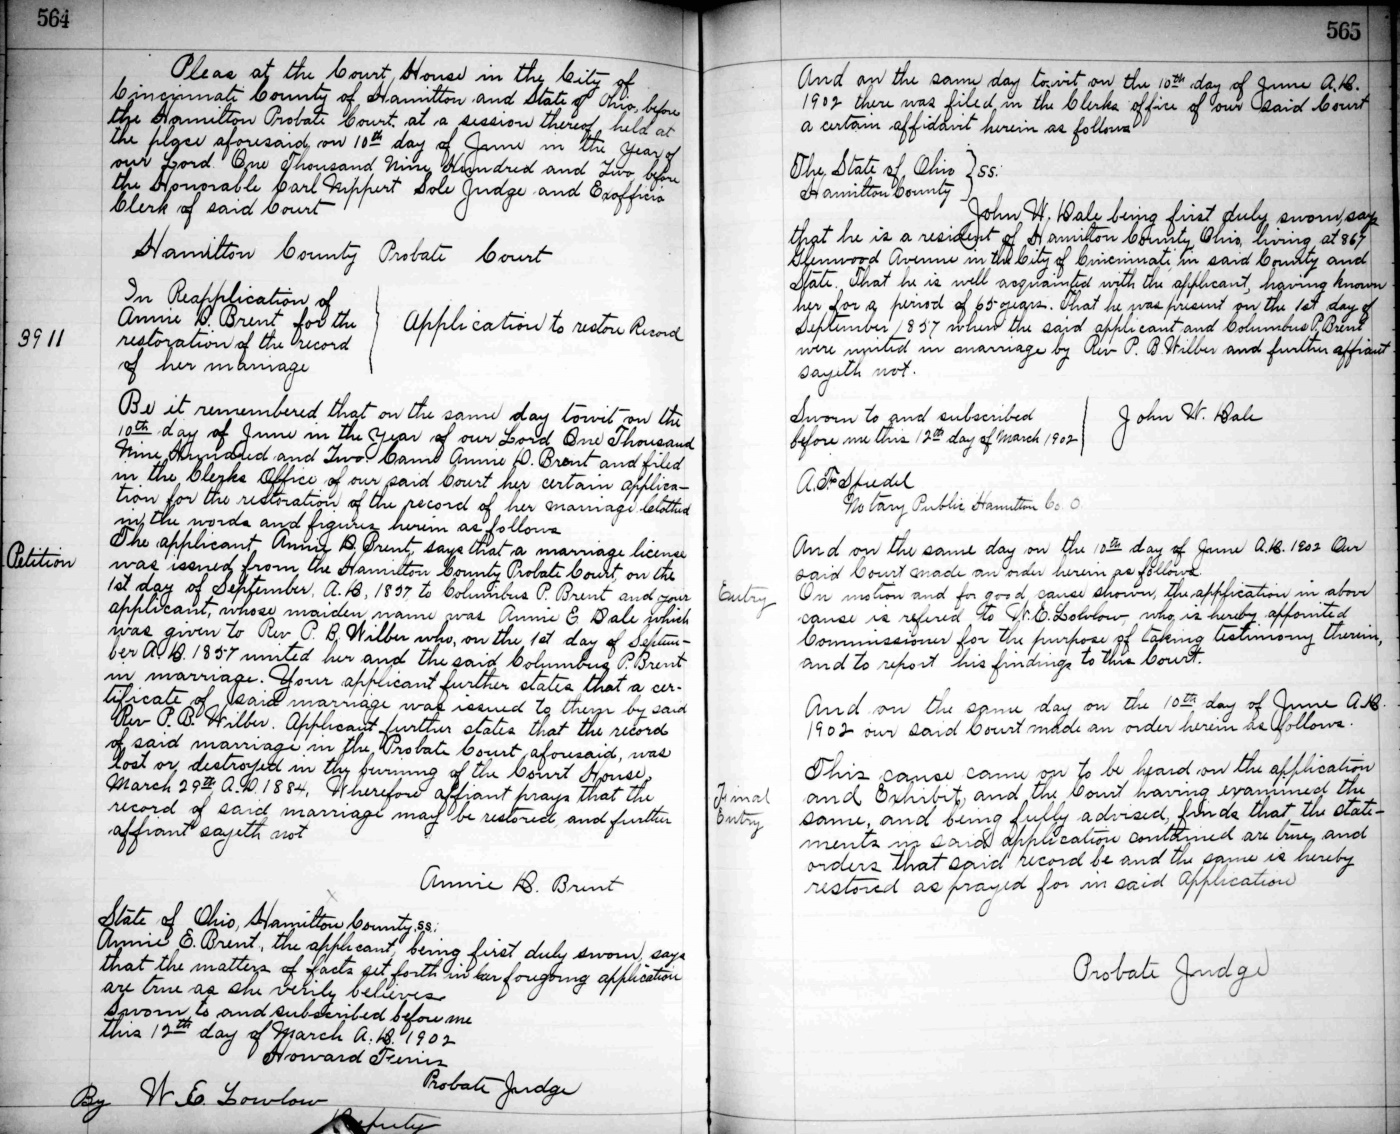 564
Pleas at the Court House in the City of
Cincinnate County of Hamilton and State of Ohio, before
the Hamilton Probate Court at a session thereof, held at
the place aforesaid, on 10th day of June in the Year of
our Lord One Thousand Nine Hundred and Two, before
the Honorable Carl Nippert Sole Judge and Exofficio
Clerk of said Court
Hamilton County Probate Court
3911
In Reapplication of
Annie D. Brent for the
restoration of the record
of her marriage
Application to restore Record
Be it remembered that on the same day towit on the
10th day of June in the Year of our Lord One Thousand
Nine Hundred and Two. Came Annie D. Brent and filed
in the Clerks Office of our said Court her certain applica-
tion for the restoration of the record of her marriage Clothed
in the words and figures herein as follows
Petition
The applicant Annie D. Brent, says that a marriage license
was issued from the Hamilton County Probate Court, on the
1st day of September, A.D. 1857 to Columbus P. Brent and your
applicant, whose maiden name was Annie E Dale which
was given to Rev P. B. Wilber who, on the 1st day of Septem-
ber A.D. 1857 united her and the said Columbus P. Brent
in marriage. Your applicant further states that a cer-
tificate of said marriage was issued to them by said
Rev P. B. Wilber. Applicant further states that the record
of said marriage in the Probate Court aforesaid, was
lost or destroyed in the burning of the Court House,
March 29th A.D. 1884. Wherefore affiant prays that the
record of said marriage may be restored, and further
affiant sayeth not
Annie D. Brent
State of Ohio, Hamilton County, ss:
Annie E. Brent, the applicant, being first duly sworn, says
that the matters of facts set forth in her foregoing application
are true as she verily believes
Sworn to and subscribed before me
this 12th day of March A.D. 1902
Howard Ferris
Probate Judge
By W. E. Lowlow
Deputy
565
And on the same day towit on the 10th day of June A.D.
1902 there was filed, in the Clerks office of our said Court
a certain affidavit herein as follows
The State of Ohio } ss:
Hamilton County
John W. Dale being first duly sworn, says
that he is a resident of Hamilton County, Ohio, living at 867
Glenwood Avenue in the City of Cincinnati, in said County and
State. That he is well acquainted with the applicant, having known
her for a period of 65 years. That he was present on the 1st day of
September 1857 when the said applicant and Columbus P. Brent
were united in marriage by Rev P. B. Wilber and further affiant
sayeth not.
Sworn to and subscribed
before me this 12th day of March 1902
John W. Dale
A. F. Spiedel
Notary Public Hamilton Co. O.
And on the same day on the 10th day of June A.D. 1902 Our
said Court made an order herein as follows
Entry
On motion and for good cause shown, the application in above
cause is refered to W. E. Lowlow, who is hereby appointed
Commissioner for the purpose of taking testimony therein,
and to report his findings to this Court.
And on the same day on the 10th day of June A.D.
1902 our said Court made an order herein as follows.
Final
Entry
This cause came on to be heard on the application
and Exhibit, and the Court having examined the
same, and being fully advised, finds that the state-
ments in said application contained are true, and
orders that said record be and the same is hereby
restored as prayed for in said Application
Probate Judge